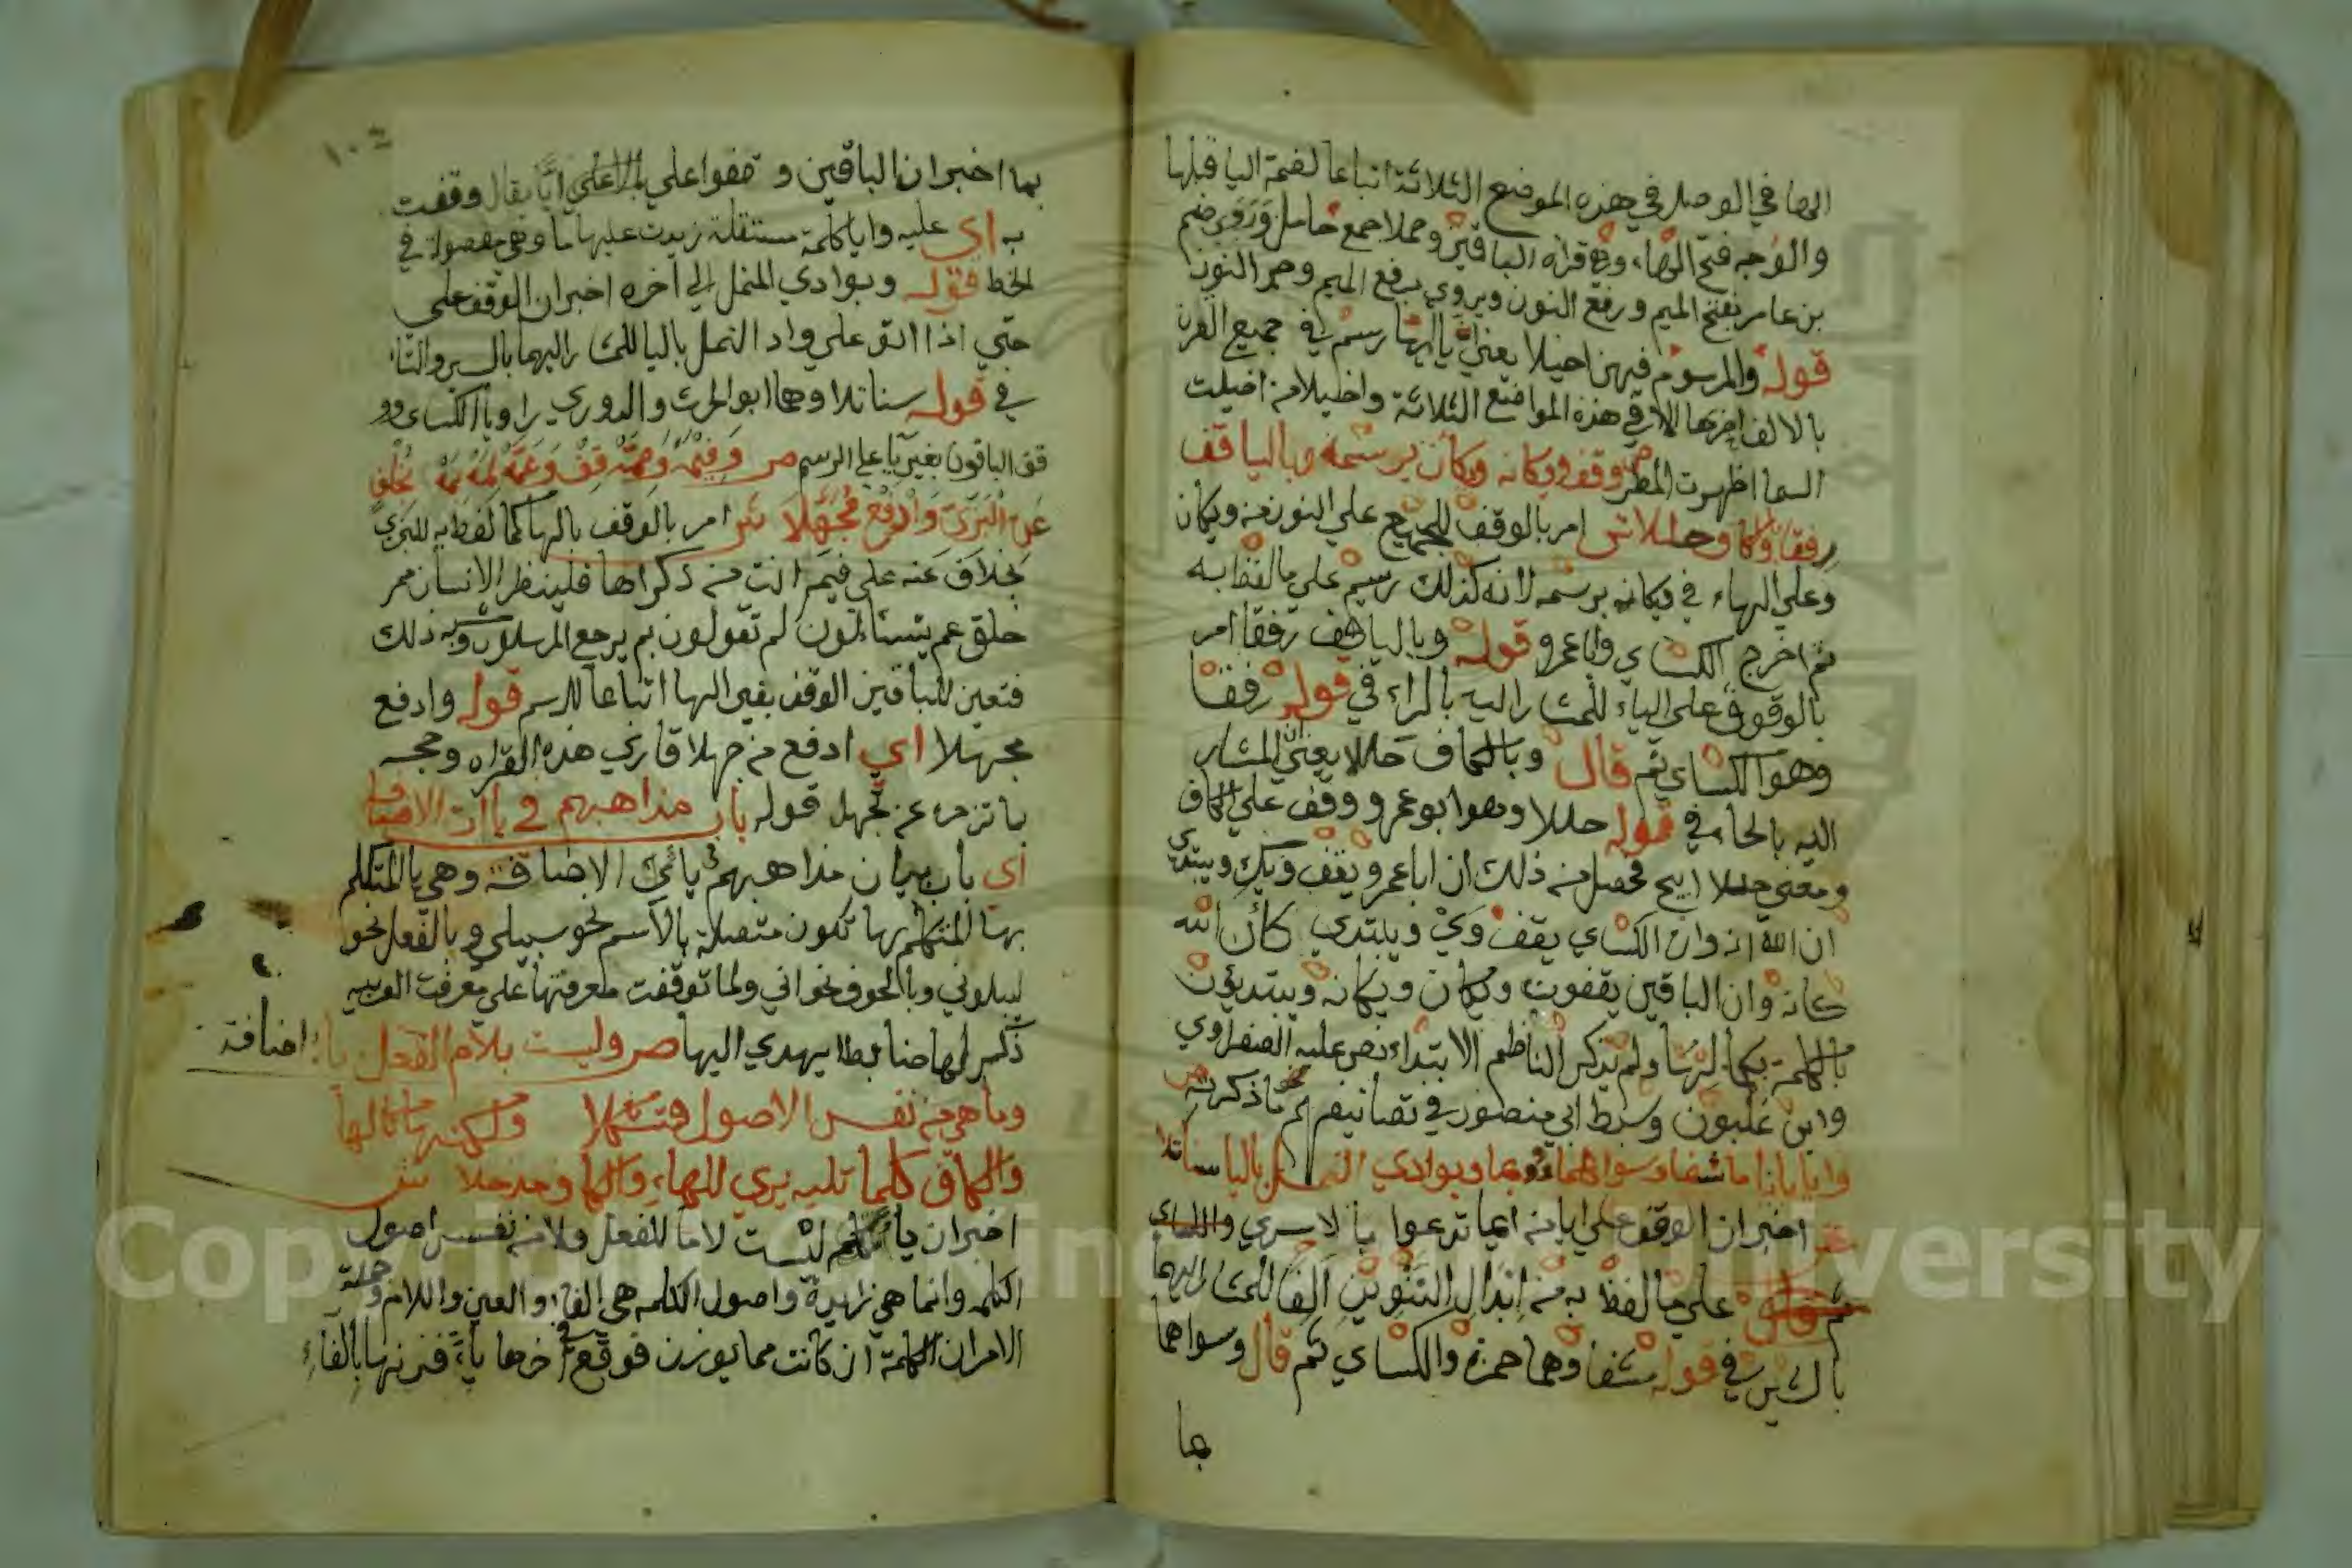 الها في الوصل في هذه المواضع الثلاثة اتباعا لضمة اليا قبلها
والوجه فتح الهاء وهي قراه الباقين وحملا جمع حامل وروي ضم
بن عامر بفتح الميم ورفع النون ويروي برفع الميم وجر النون
قوله والمرسوم فيهن اخيلا يعني ان يا ايها رسم في جميع القران
بالالف اخرها الا في هذه المواضع الثلاثة واخيلا من اخيلت
السما اظهرت المطر ص وقف ويكانه ويكان برسمه وباليا قف
رفقا وبالكاف حللا ش امر بالوقف للجميع علي النون من ويكان
وعلي الهاء في ويكانه برسمه لانه كذلك رسم علي ما لفظ به
ثم اخرج الكساي واباعمرو قوله وباليا قف رفقا امر
بالوقوف علي الياء للمشار اليه بالراء في قوله رفقا
وهو الكساي ثم قال وبالكاف حللا يعني ان المشار
اليه بالحاء في قوله حللا وهو ابو عمرو ووقف علي الكاف
ومعني حللا ابيح فحصل من ذلك ان اباعمرو يقف ويك ويبتدي
ان الله انه وان الكساي يقف وي ويبتدي كأن الله
كانه وان الباقين يقفون ويكان ويكانه ويبتديون
بالكلمة بكمالها ولم يذكر الناظم الابتداء نص عليه الصفراوي
وابن غلبون وسبط ابي منصور في تصانيفهم نحو ما ذكرته ص
وايا باياما شفا وسواهما بما وبوادي النمل باليا سنا تلا
ش اخبر ان الوقف علي ايا من اياما تدعوا
علي ما لفظ به من ابدال التنوين الفا للمشار اليهما
بالشين في قوله شفا وهما حمزة والكساي ثم قال وسواهما
بما
١٠٤
بما اخبر ان الباقين وقفوا علي ما لا علي ايا يقال وقفت
به اي عليه وايا كلمة مستقلة زيدت عليها ما وهي مفصولة في
الخط قوله وبوادي النمل الي اخره اخبر ان الوقف علي
حتي اذا اتو علي واد النمل باليا للمشار اليهما بالسين والتاء
في قوله سنا تلا وهما ابو الحرث والدوري راويا الكساي وو
قف الباقون بغير يا علي الرسم ص وفيمه وممه قف وعمه لمه بمه بخلف
عن البزي وادفع مجهلا ش امر بالوقف بالها كما لفظ به للبزي
بخلاف عنه علي فيم انت من ذكراها فلينظر الانسان مم
خلق عم يتساءلون لم تقولون بم يرجع المرسلون وشبه ذلك
فتعين للباقين الوقف بغير الها اتباعا للرسم قوله وادفع
مجهلا اي ادفع من جهلا قاري هذه القراه وحجه
بما تزجره عن تجهله قوله باب مذاهبهم في ياات الاضافة
اي باب بيان مذاهبهم في يائي الاضافة وهي يا المتكلم
بها المتكلم بها تكون متصلة بالاسم نحو سبيلي وبالفعل نحو
ليبلوني وبالحروف نحو اني ولما توقفت معرفتها علي معرفت العربيه
ذكر لها ضابطا يهدي اليها ص وليست بلام الفعل ياء اضافة
وما هي من نفس الاصول فتشكلا ولكنها كالها
والكاف كلما تليه يري للهاء والكاف مدخلا ش
اخبر ان ياء المتكلم ليست لاما للفعل ولا من نفس اصول
الكلمه وانما هي زايدة واصول الكلمه هي الفاء والعين واللام وجملة
الامر ان الكلمة ان كانت مما يوزن فوقع في اخرها ياء فزنها بالفاء
Copyright © King Saud University